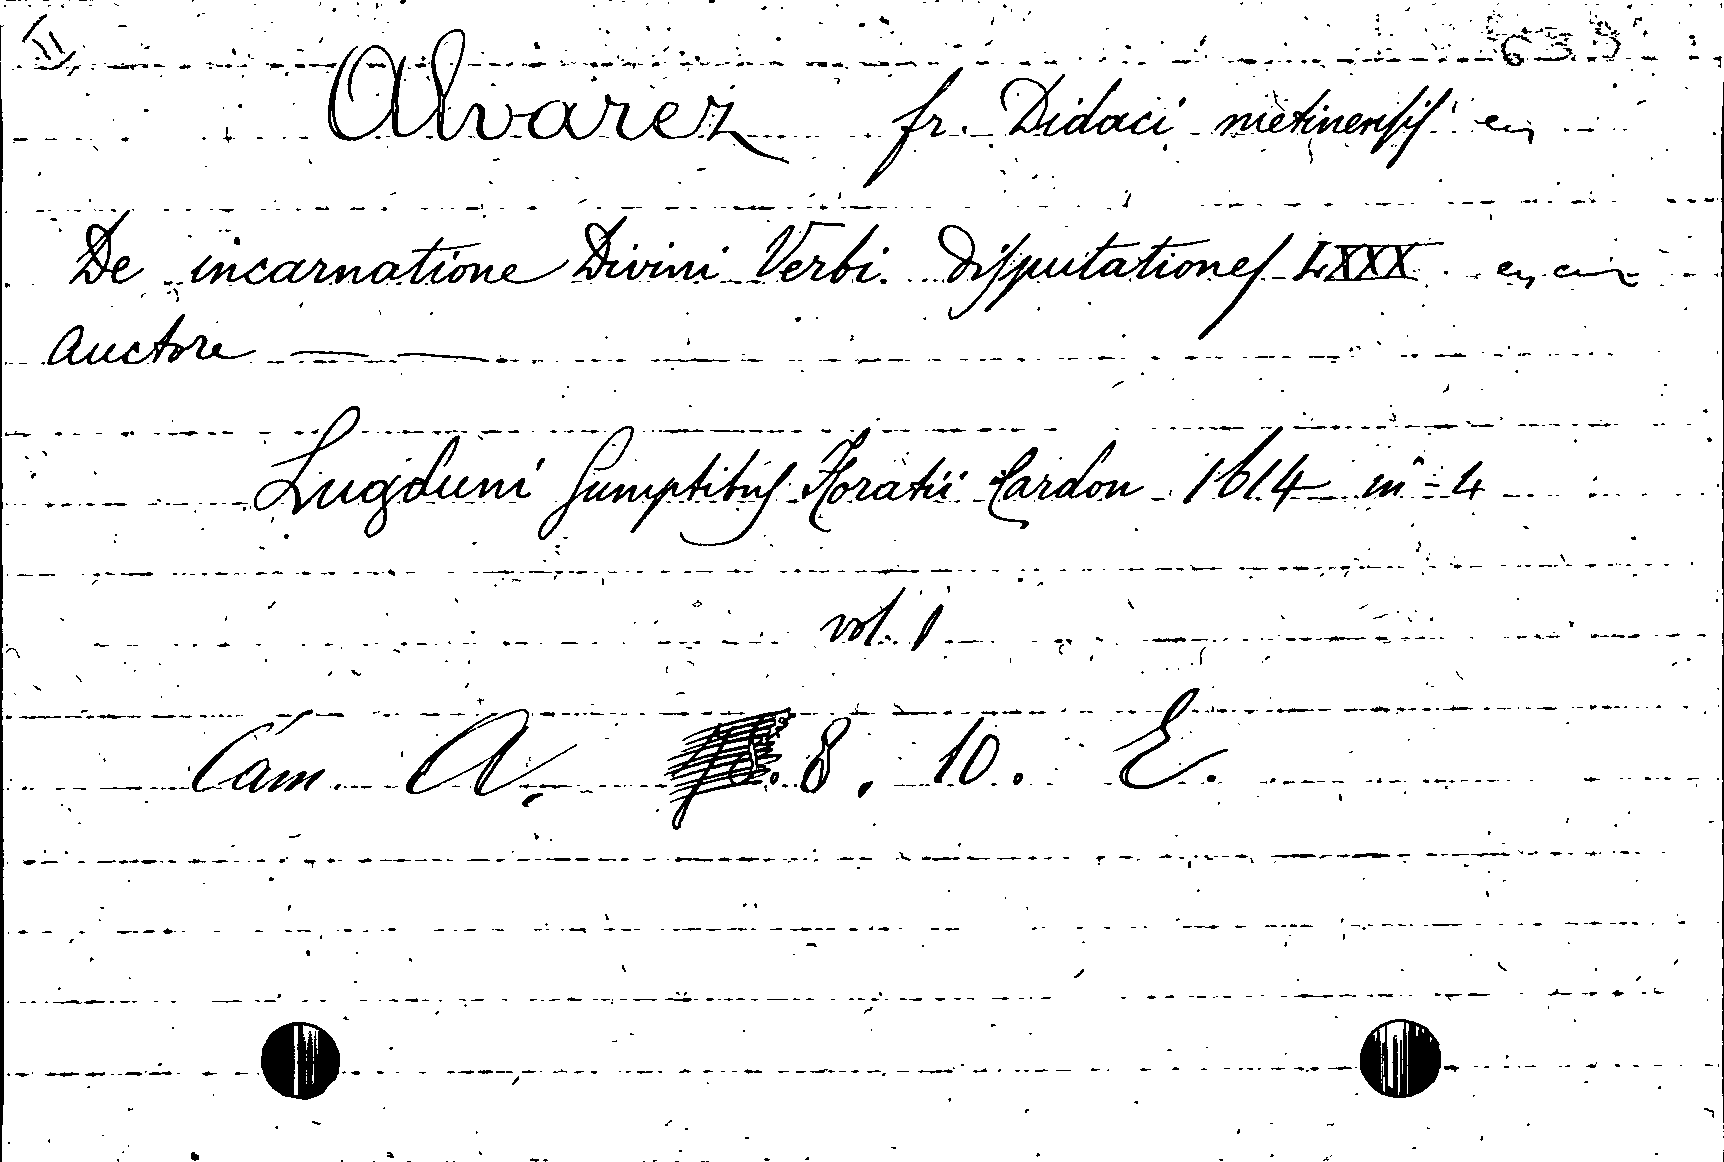 II 635
Alvarez fr. Didaci metinensis
De incarnatione Divini Verbi. Disputationes LXXX.
auctore — —
Lugduni Sumptibus Horatii Cardon 1614 in-4
vol. 1
Cam. A. 8. 10. E.